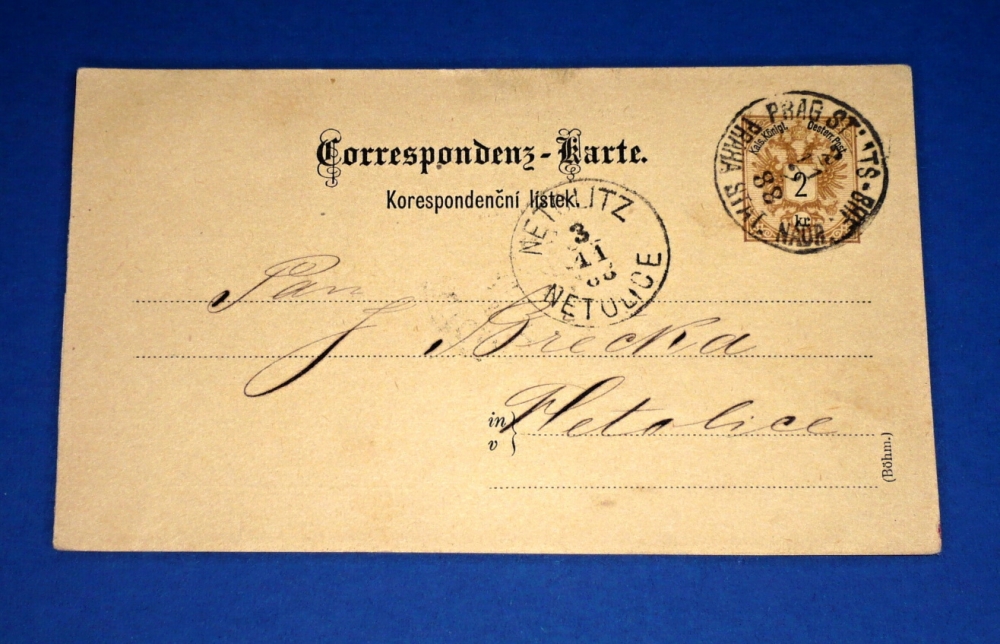 Correspondenz-Karte.
Korespondenční lístek.
Kais. Königl. Oesterr. Post.
2
kr.
PRAG STAATS-BHF
PRAHA
NÁDR.
88
NETOLITZ
3
11
88
NETOLICE
Pan
J Brecka
in
v
Netolice
(Böhm.)